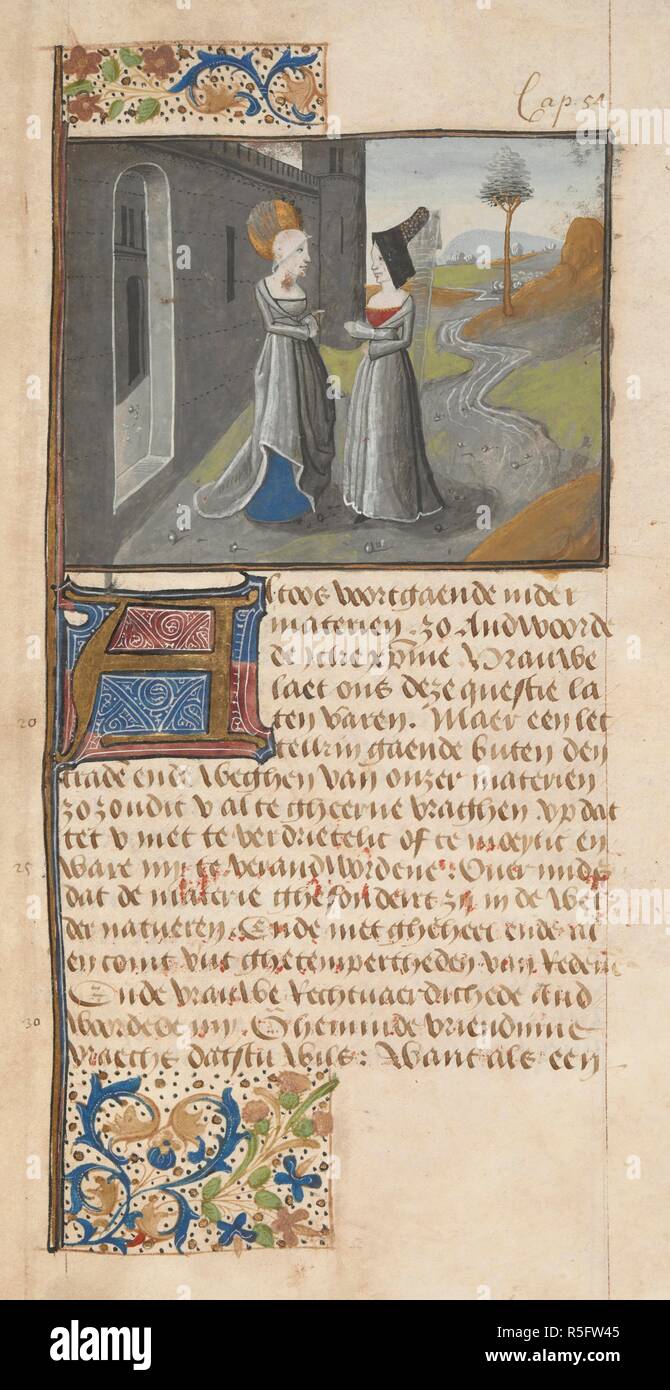 Cap. 54
Altoos voortgaende inder
materien . zo Andwoorde
de ic xpine Vrauwe
laet ons deze questie la
ten varen. Maer een let
tellin gaende buten den
20
trade ende weghen van onzer materien
zo zoudic v al te gheerne vraghen. vp dat
tet v niet te verdrietelic of te moeylic en
25 ware mj te verandwordene: Ouermids
dat de materie ghefondeirt zy in de wet
der natueren. Ende niet gheheel ende al
en comt vut ghetempertheden van Redene
Ende vrauwe Rechtuaerdichede And
30 woordede mj. Gheminde vriendinne
vraecht datstu wils: want als een
alamy
Image ID: R5FW45
www.alamy.com